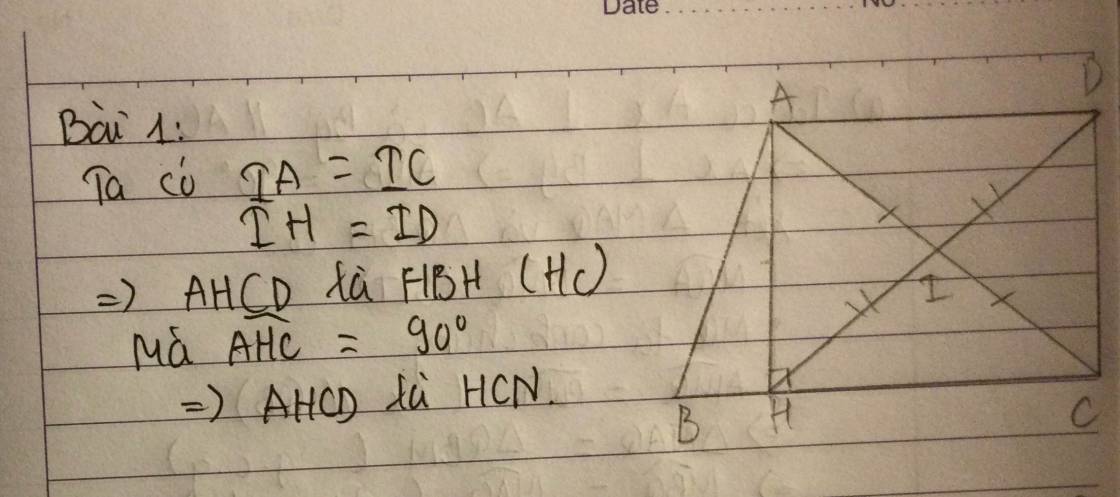 Date .................. No.
Bài 1:
Ta có IA = IC
IH = ID
=> AHCD là HBH (HC)
Mà AHC = 90°
=> AHCD là HCN.
A
D
I
B
H
C